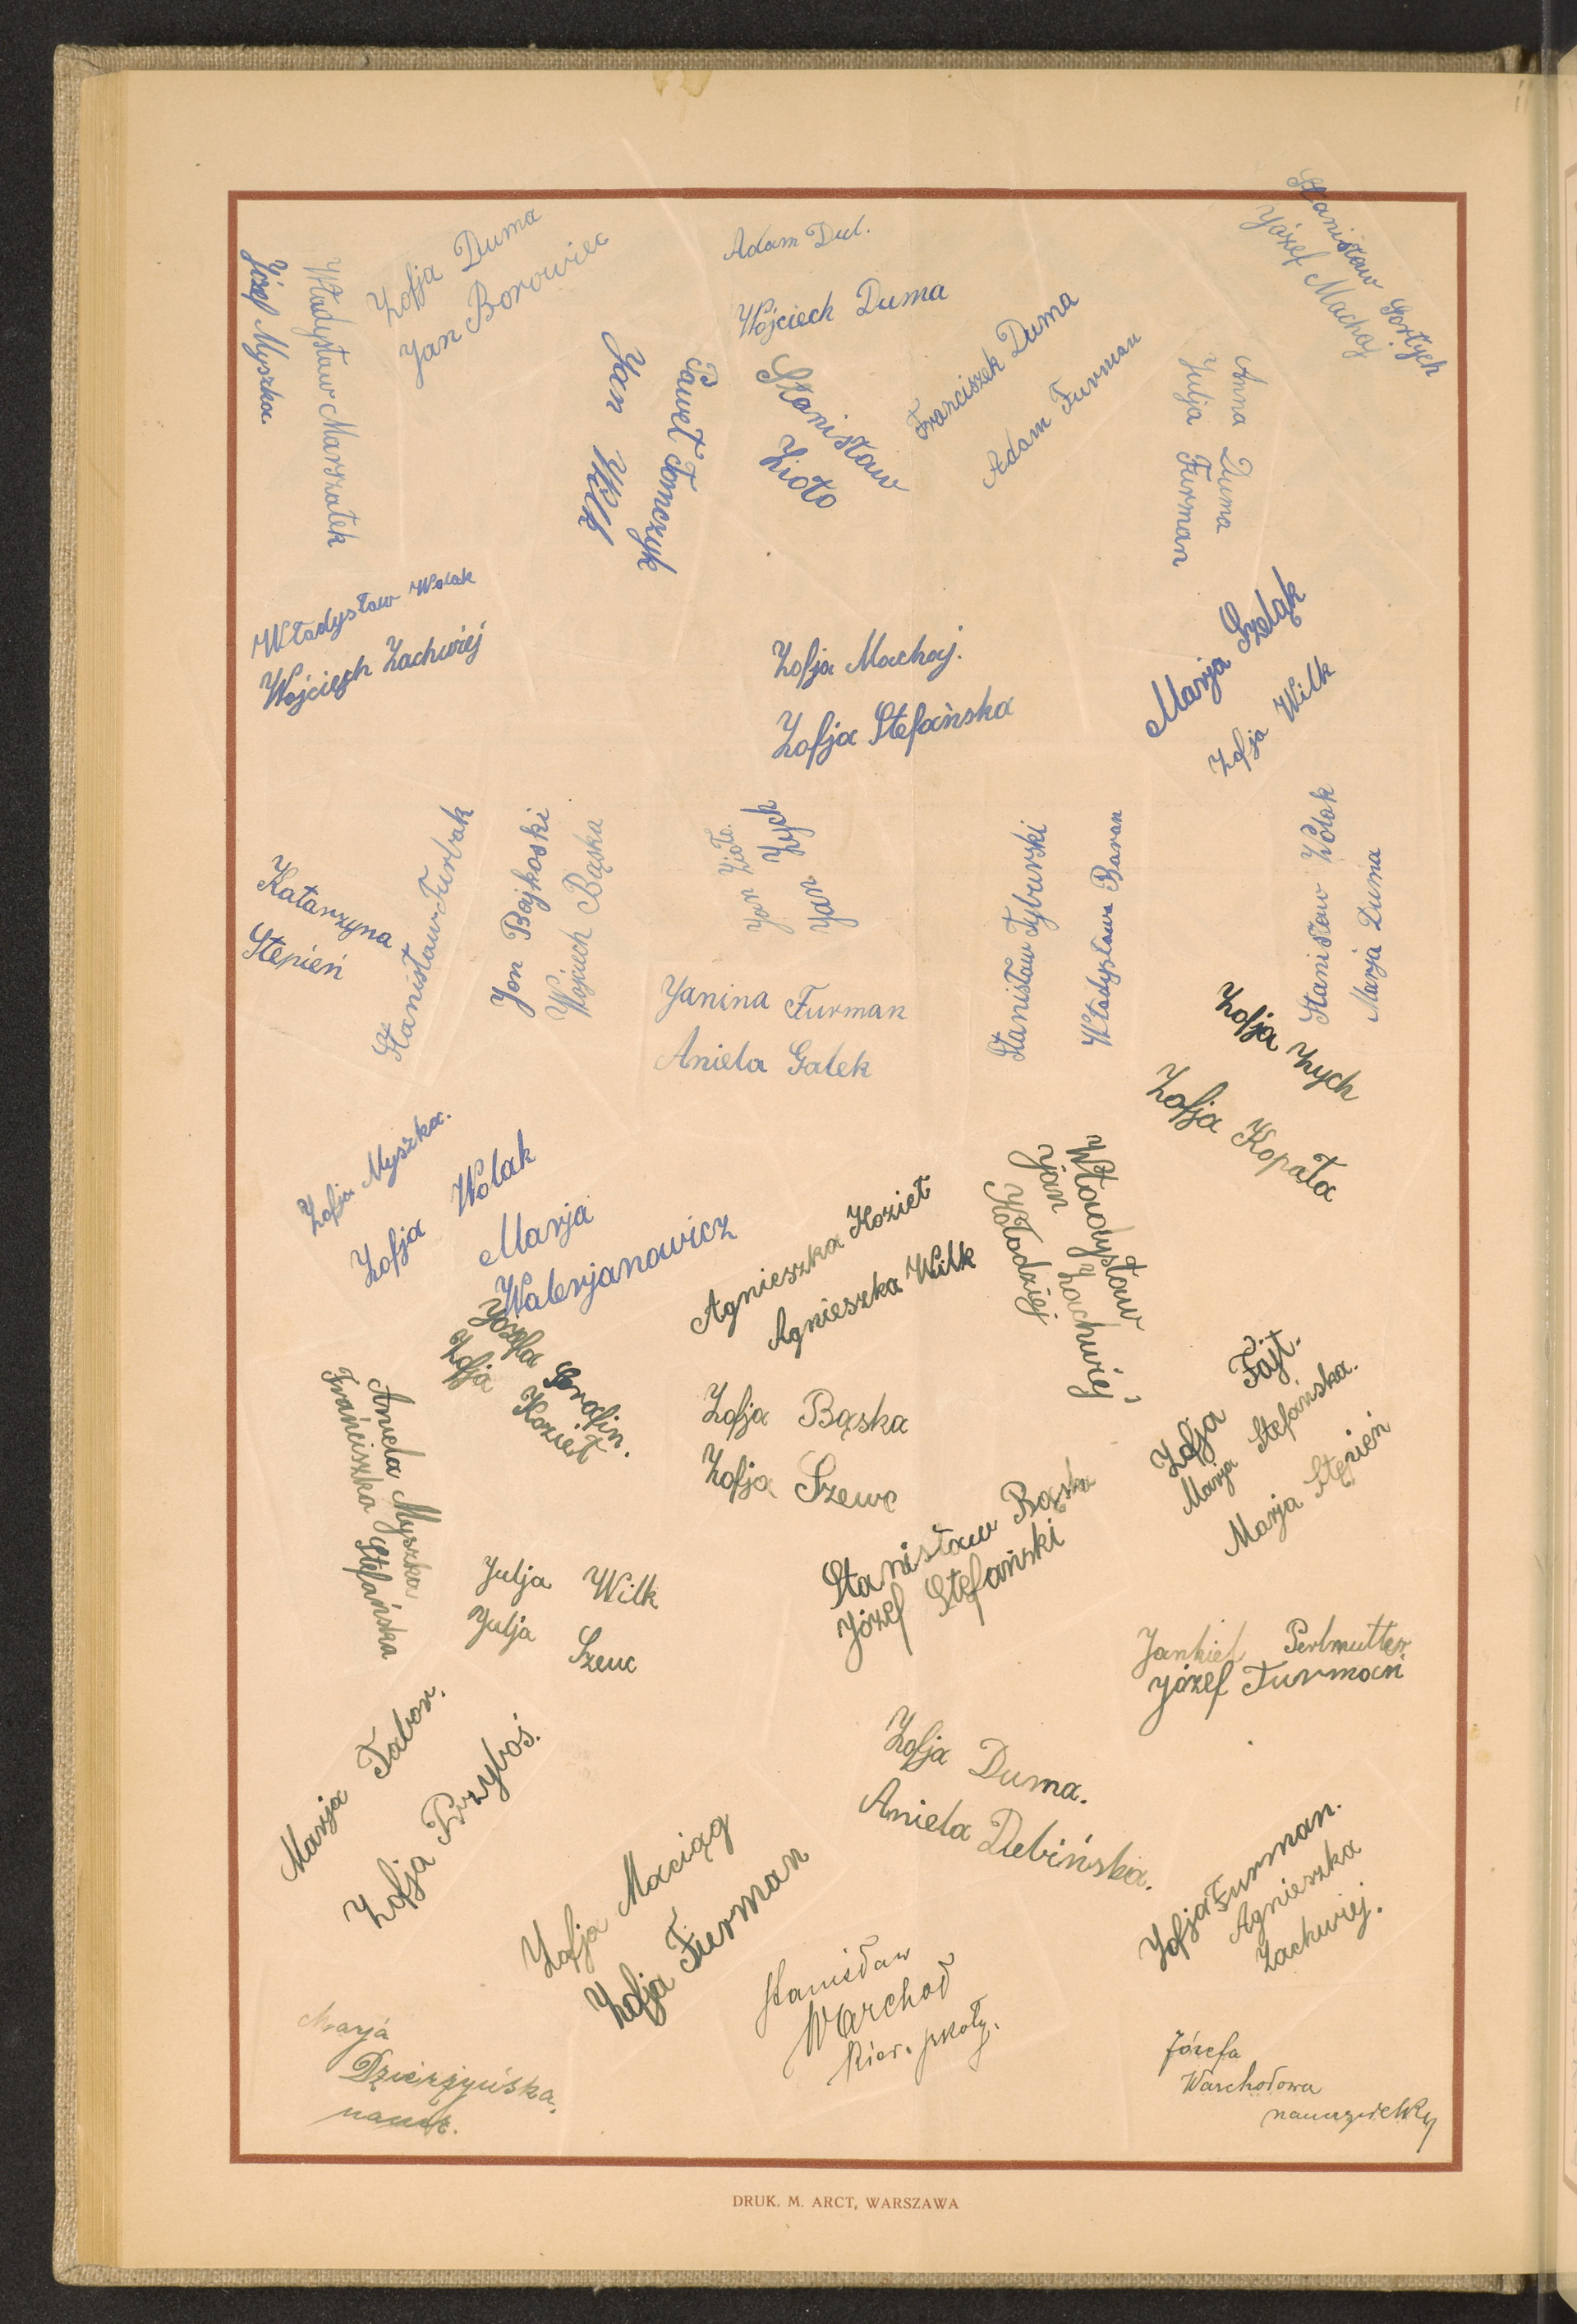 Józef Myszka.
Władysław Marszałek
Zofja Duma
Jan Borowiec
Adam Dul.
Wojciech Duma
Stanisław
Zioło
Jan Wilk
Paweł Tomczyk
Franciszek Duma
Adam Furman
Stanisław Gorlych
Józef Machaj
Anna Duma
Julja Furman
Władysław Wolak
Wojciech Zachwiej
Zofja Machaj.
Zofja Stefańska
Marja Szeląk
Zofja Wilk
Katarzyna
Stepień
Stanisław Furbak
Jan Bajkoski
Wojciech Bąska
Jan Zioło.
Jan Zych
Janina Furman
Aniela Gałek
Stanisław Tyburski
Władysława Baran
Stanisław Wolak
Marja Duma
Zofja Zych
Zofja Kopała
Zofja Myszka.
Zofja Wolak
Marja
Walerjanowicz
Józefa Serafin.
Zofja Kozieł
Agnieszka Kozieł
Agnieszka Wilk
Władysław Zachwiej,
Jan Kołodziej
Aniela Myszka
Frańciszka Stefańska
Zofja Bąska
Zofja Szewc
Zofja Fajt.
Marja Stefańska.
Marja Stępień
Julja Wilk
Julja Szewc
Stanisław Bąska
Józef Stefański
Jankiel Perlmutter.
Józef Furman
Marja Tabor.
Zofja Przyboś.
Zofja Duma.
Aniela Debińska.
Zofja Maciąg
Zofja Furman
Zofja Furman.
Agnieszka
Zachwiej.
Marja
Dzierżyńska,
naucz.
Stanisław
Warchoł
kier. szkoły.
Józefa
Warchołowa
nauczycielka
DRUK. M. ARCT, WARSZAWA